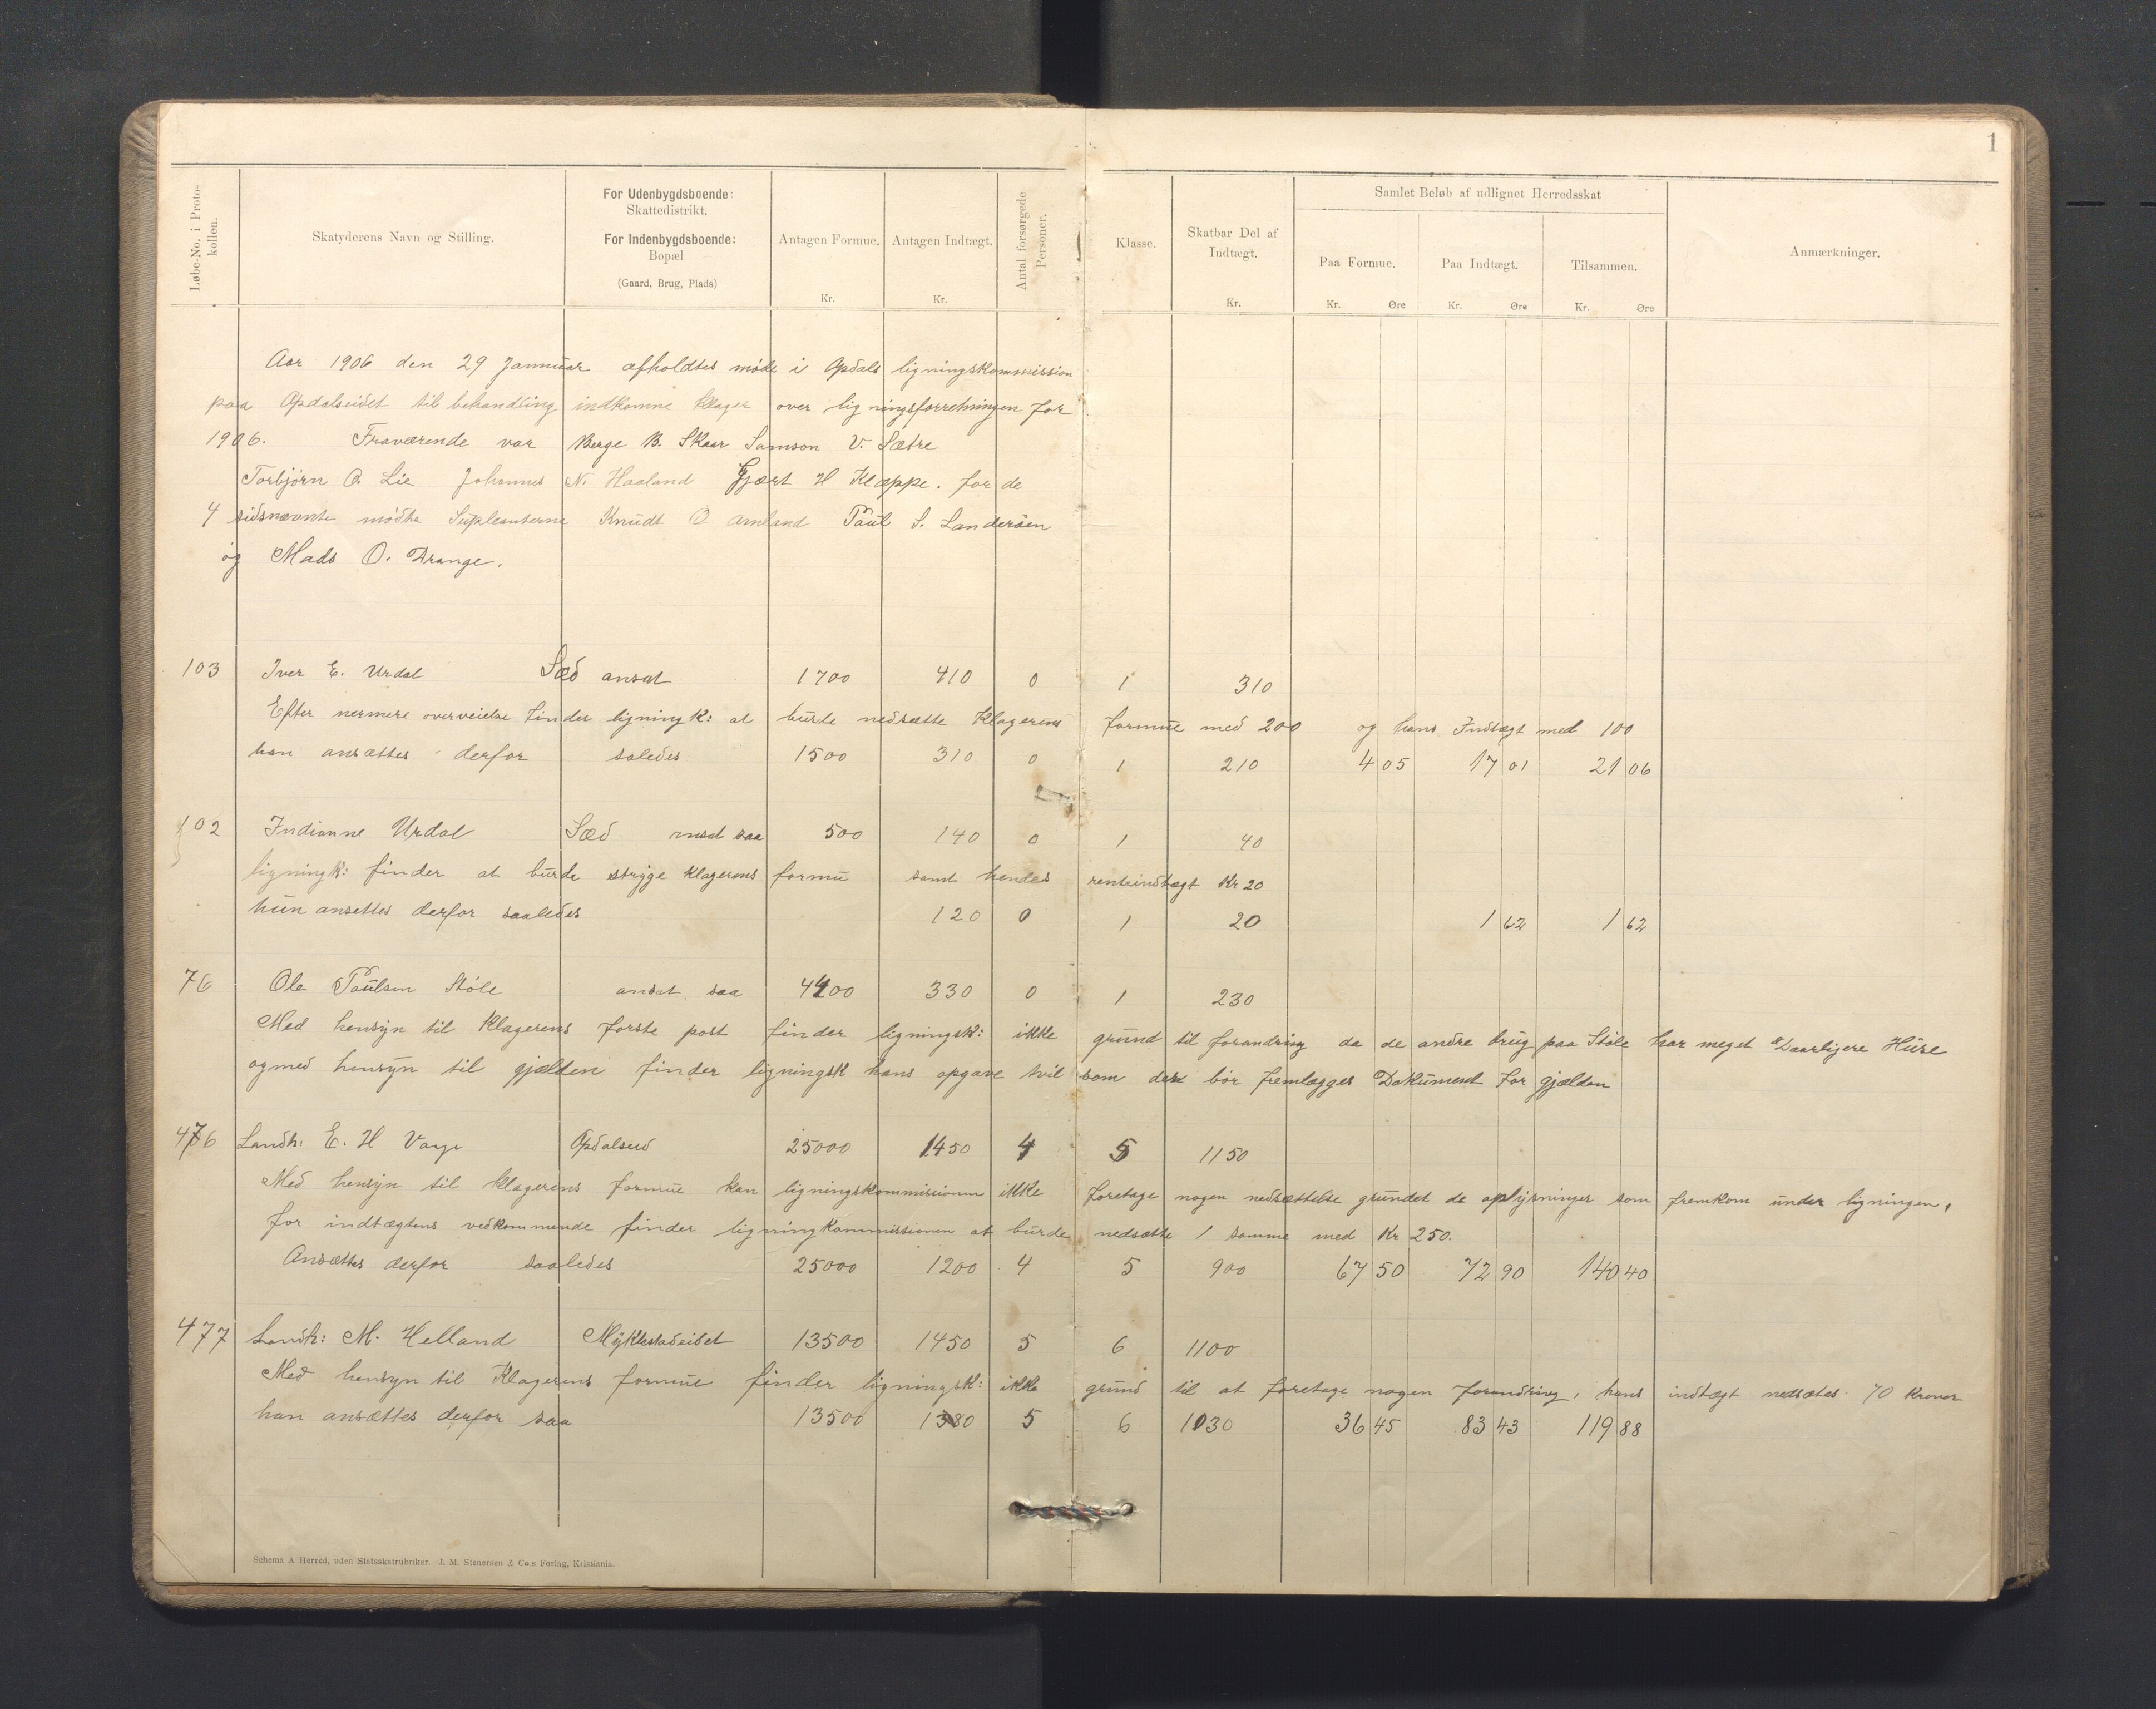 1
Løbe-No. i Proto-
kollen.
Skatyderens Navn og Stilling.
For Udenbygdsboende:
Skattedistrikt.
For Indenbygdsboende:
Bopæl
(Gaard, Brug, Plads)
Antagen Formue.
Kr.
Antagen Indtægt.
Kr.
Antal forsørgede
Personer.
Klasse.
Skatbar Del af
Indtægt.
Kr.
Samlet Beløb af udlignet Herredsskat
Paa Formue. Paa Indtægt. Tilsammen.
Kr. Øre Kr. Øre Kr. Øre
Anmærkninger.
Aar 1906 den 29 Januar afholdtes møde i Opdals ligningskommission
paa Opdalseidet til behandling indkomne klager over ligningsforretningen for
1906. Fraværende var Berge B. Skaar Samson V. Sætre
Torbjørn O. Lie Johannes N. Haaland Gjært H Kleppe. for de
4 sidsnævnte mødte Supleanterne Knudt O Amland Paul S. Landerøen
og Mads O. Drange.
103 Iver E. Urdal Sæd ansat 1700 410 0 1 310
Efter nermere overveielse finder ligningk: at burde nedsætte Klagerens formue med 200 og hans Indtægt med 100
han ansættes derfor saledes 1500 310 0 1 210 4 05 17 01 21 06
102 Indianne Urdal Sæd ansat saa 500 140 0 1 40
ligningk: finder at burde stryge klagerens formu samt hendes renteindtægt Kr 20
hun ansettes derfor saaledes 120 0 1 20 1 62 1 62
76 Ole Paulsen Støle ansat saa 4400 330 0 1 230
Med hensyn til Klagerens første post finder ligningsk: ikke grund til forandring da de andre brug paa Støle har meget Daarligere Huse
og med hensyn til gjælden finder ligningsk hans opgave tvilsom der bør fremlægges Dokument for gjælden
476 Landh: E. H Vage Opdalseid 25000 1450 4 5 1150
Med hensyn til klagerens formue kan ligningskommissionen ikke foretage nogen nedsættelse grundet de oplysninger som fremkom under ligningen,
for indtægtens vedkommende finder ligningkommissionen at burde nedsætte samme med Kr 250.
Ansættes derfor saaledes 25000 1200 4 5 900 67 50 72 90 140 40
477 Landh: M. Helland Myklestadeidet 13500 1450 5 6 1100
Med hensyn til Klagerens formue finder ligningsk: ikke grund til at foretage nogen forandring, hans indtægt nedsætes 70 kroner
han ansættes derfor saa 13500 1380 5 6 1030 36 45 83 43 119 88
Schema A Herred, uden Statsskatrubriker. J. M. Stenersen & Co.s Forlag, Kristiania.